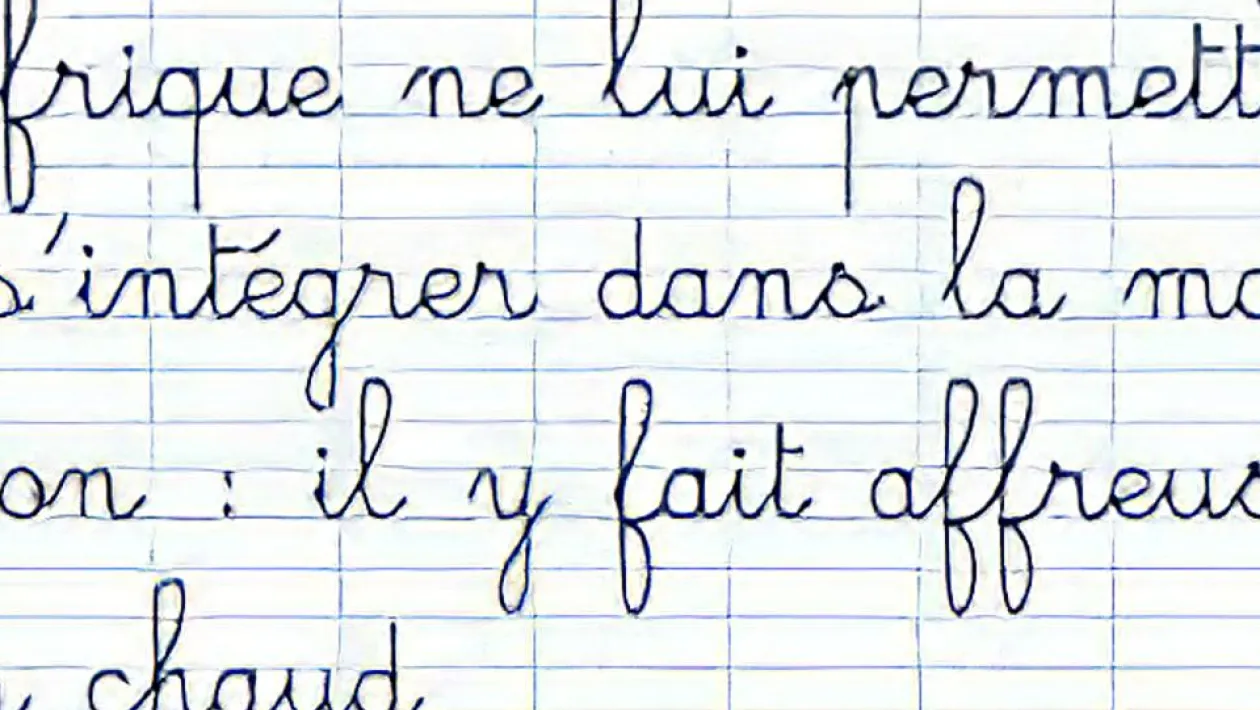 frique ne lui permett
s'intégrer dans la mo
on : il y fait affreus
chaud